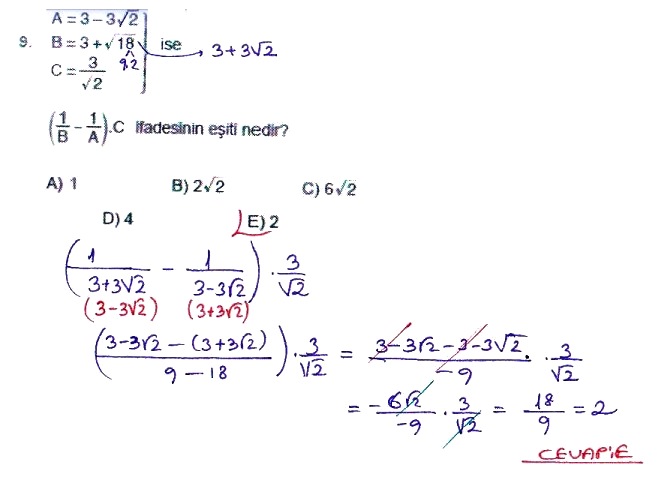 A = 3 − 3√2
9. B = 3 + √18 ise → 3 + 3√2
9.2
C = 3/√2
(1/B − 1/A).C ifadesinin eşiti nedir?
A) 1 B) 2√2 C) 6√2
D) 4 E) 2
(1/(3+3√2) − 1/(3−3√2)) · 3/√2
(3−3√2) (3+3√2)
((3−3√2 − (3+3√2))/(9 − 18)) · 3/√2 = (3−3√2−3−3√2)/−9 · 3/√2
= −6√2/−9 · 3/√2 = 18/9 = 2
CEVAP: E